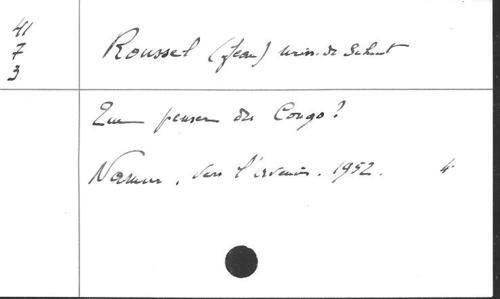 41
7
3
Roussel (Jean) miss. de Scheut
Que penser du Congo?
Namur, Vers l'Avenir. 1952.